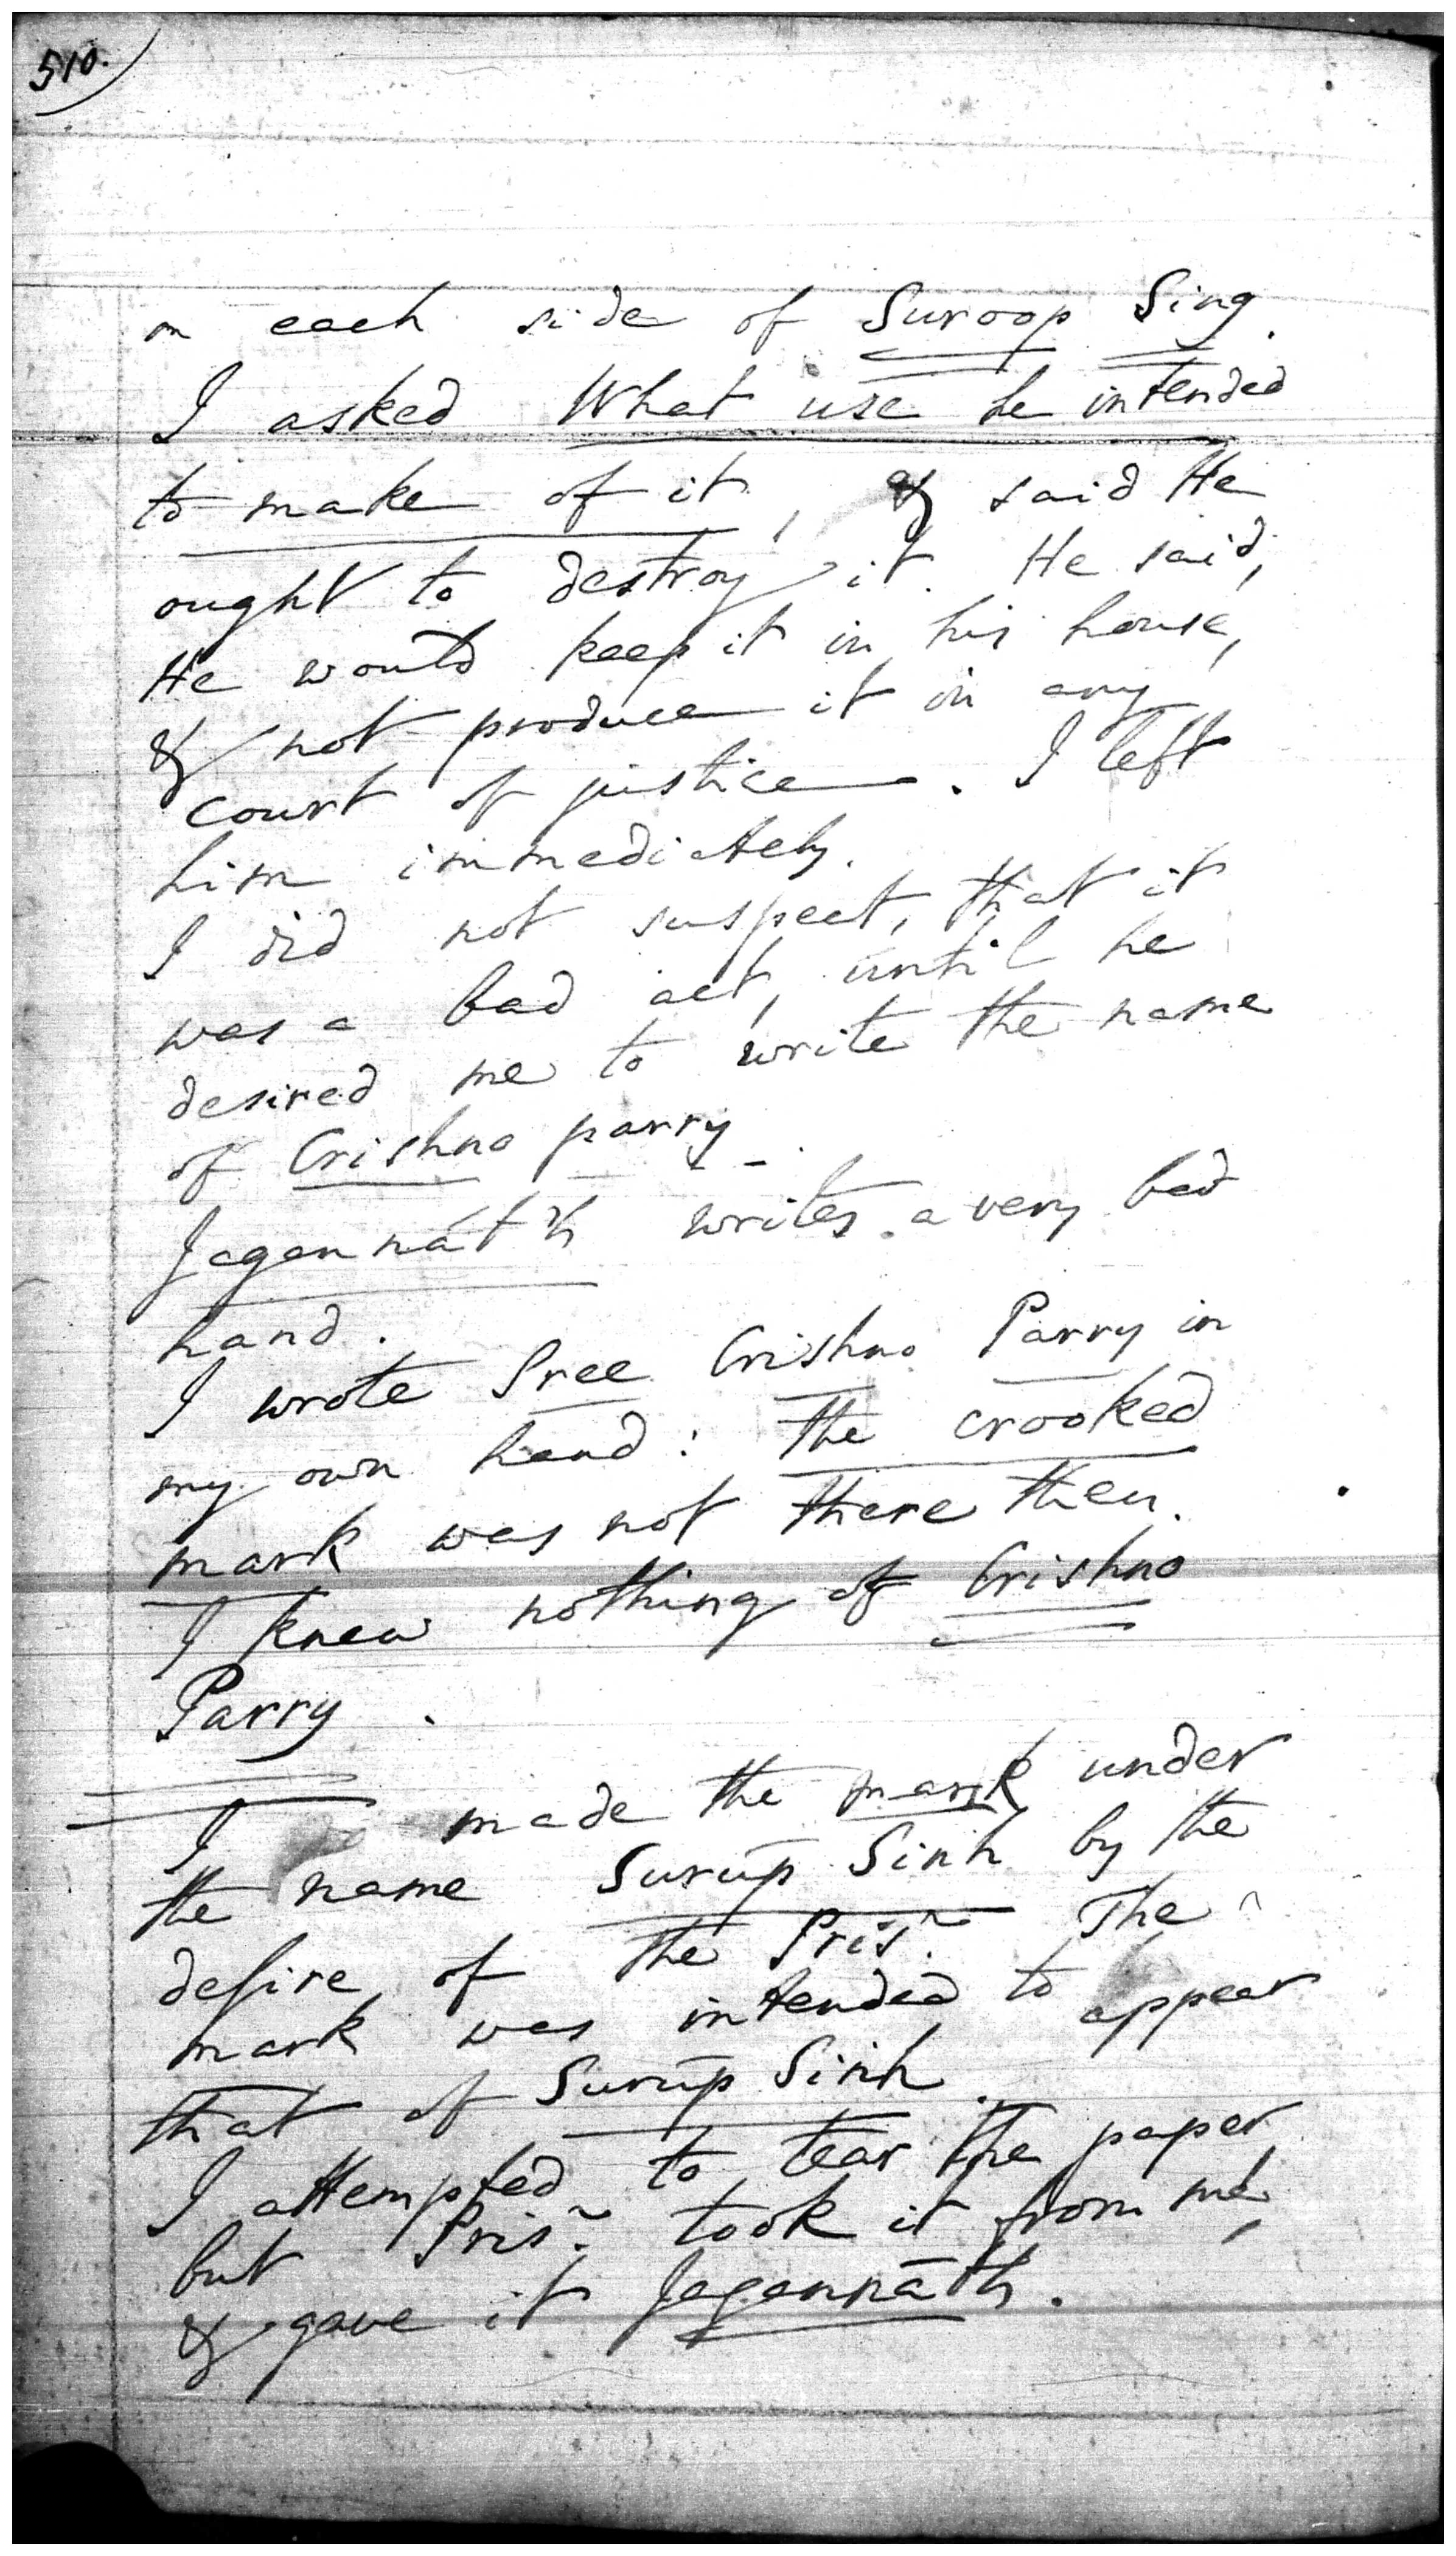 510.
on each side of Suroop Sing.
I asked What use he intended
to make of it, & said He
ought to destroy it. He said,
He would keep it in his house,
& not produce it in any
court of justice. I left
him immediately.
I did not suspect, that it
was a bad act, until he
desired me to write the name
of Crishno parry
Jagannát'h writes a very bad
hand.
I wrote Sree Crishno Parry in
my own hand: The crooked
mark was not there then.
I knew nothing of Crishno
Parry.
I made the mark under
the name Surūp Sinh by the
desire of the Prisr. The
mark was intended to appear
that of Surūp Sinh.
I attempted to tear the paper
but Prisr. took it from me,
& gave it Jagannāth.